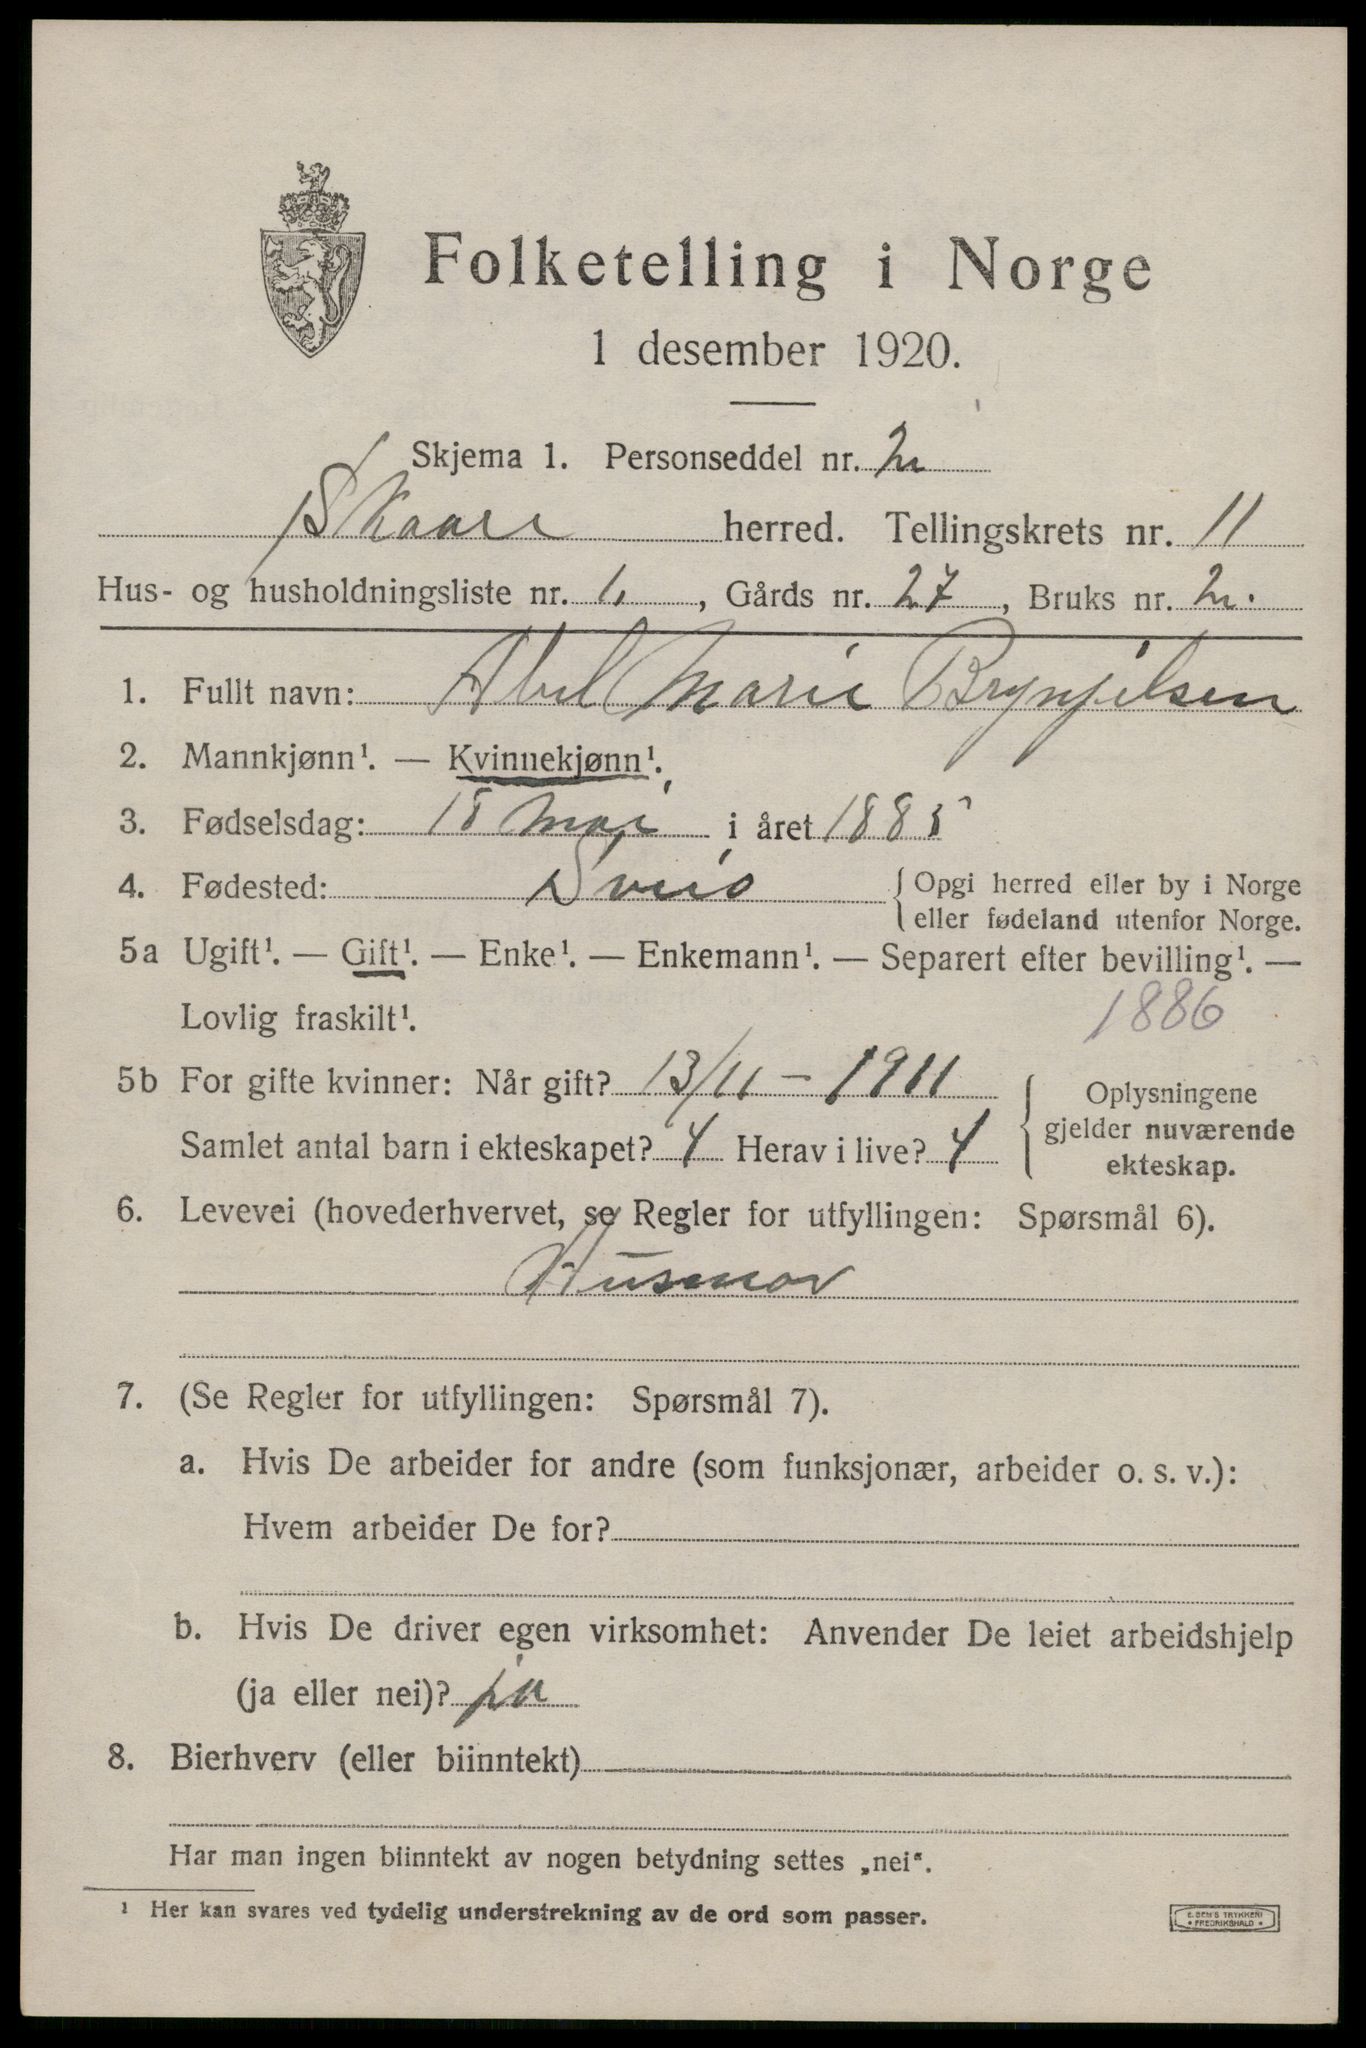 Folketelling i Norge
1 desember 1920.
Skjema 1. Personseddel nr. 2
Skaare herred. Tellingskrets nr. 11
Hus- og husholdningsliste nr. 6, Gårds nr. 27, Bruks nr. 2.
1. Fullt navn: Abel Marie Brynjelsen
2. Mannkjønn¹. — Kvinnekjønn¹.
3. Fødselsdag: 18 mai i året 1885
4. Fødested: Sveio { Opgi herred eller by i Norge
eller fødeland utenfor Norge.
5a Ugift¹. — Gift¹. — Enke¹. — Enkemann¹. — Separert efter bevilling¹. —
Lovlig fraskilt¹. 1886
5b For gifte kvinner: Når gift? 13/11 – 1911
Samlet antal barn i ekteskapet? 4 Herav i live? 4
{ Oplysningene
gjelder nuværende
ekteskap.
6. Levevei (hovederhvervet, se Regler for utfyllingen: Spørsmål 6).
Husmor
7. (Se Regler for utfyllingen: Spørsmål 7).
a. Hvis De arbeider for andre (som funksjonær, arbeider o. s. v.):
Hvem arbeider De for?
b. Hvis De driver egen virksomhet: Anvender De leiet arbeidshjelp
(ja eller nei)? ja
8. Bierhverv (eller biinntekt)
Har man ingen biinntekt av nogen betydning settes „nei“.
¹ Her kan svares ved tydelig understrekning av de ord som passer.
E. SEM'S TRYKKERI
• FREDRIKSHALD •